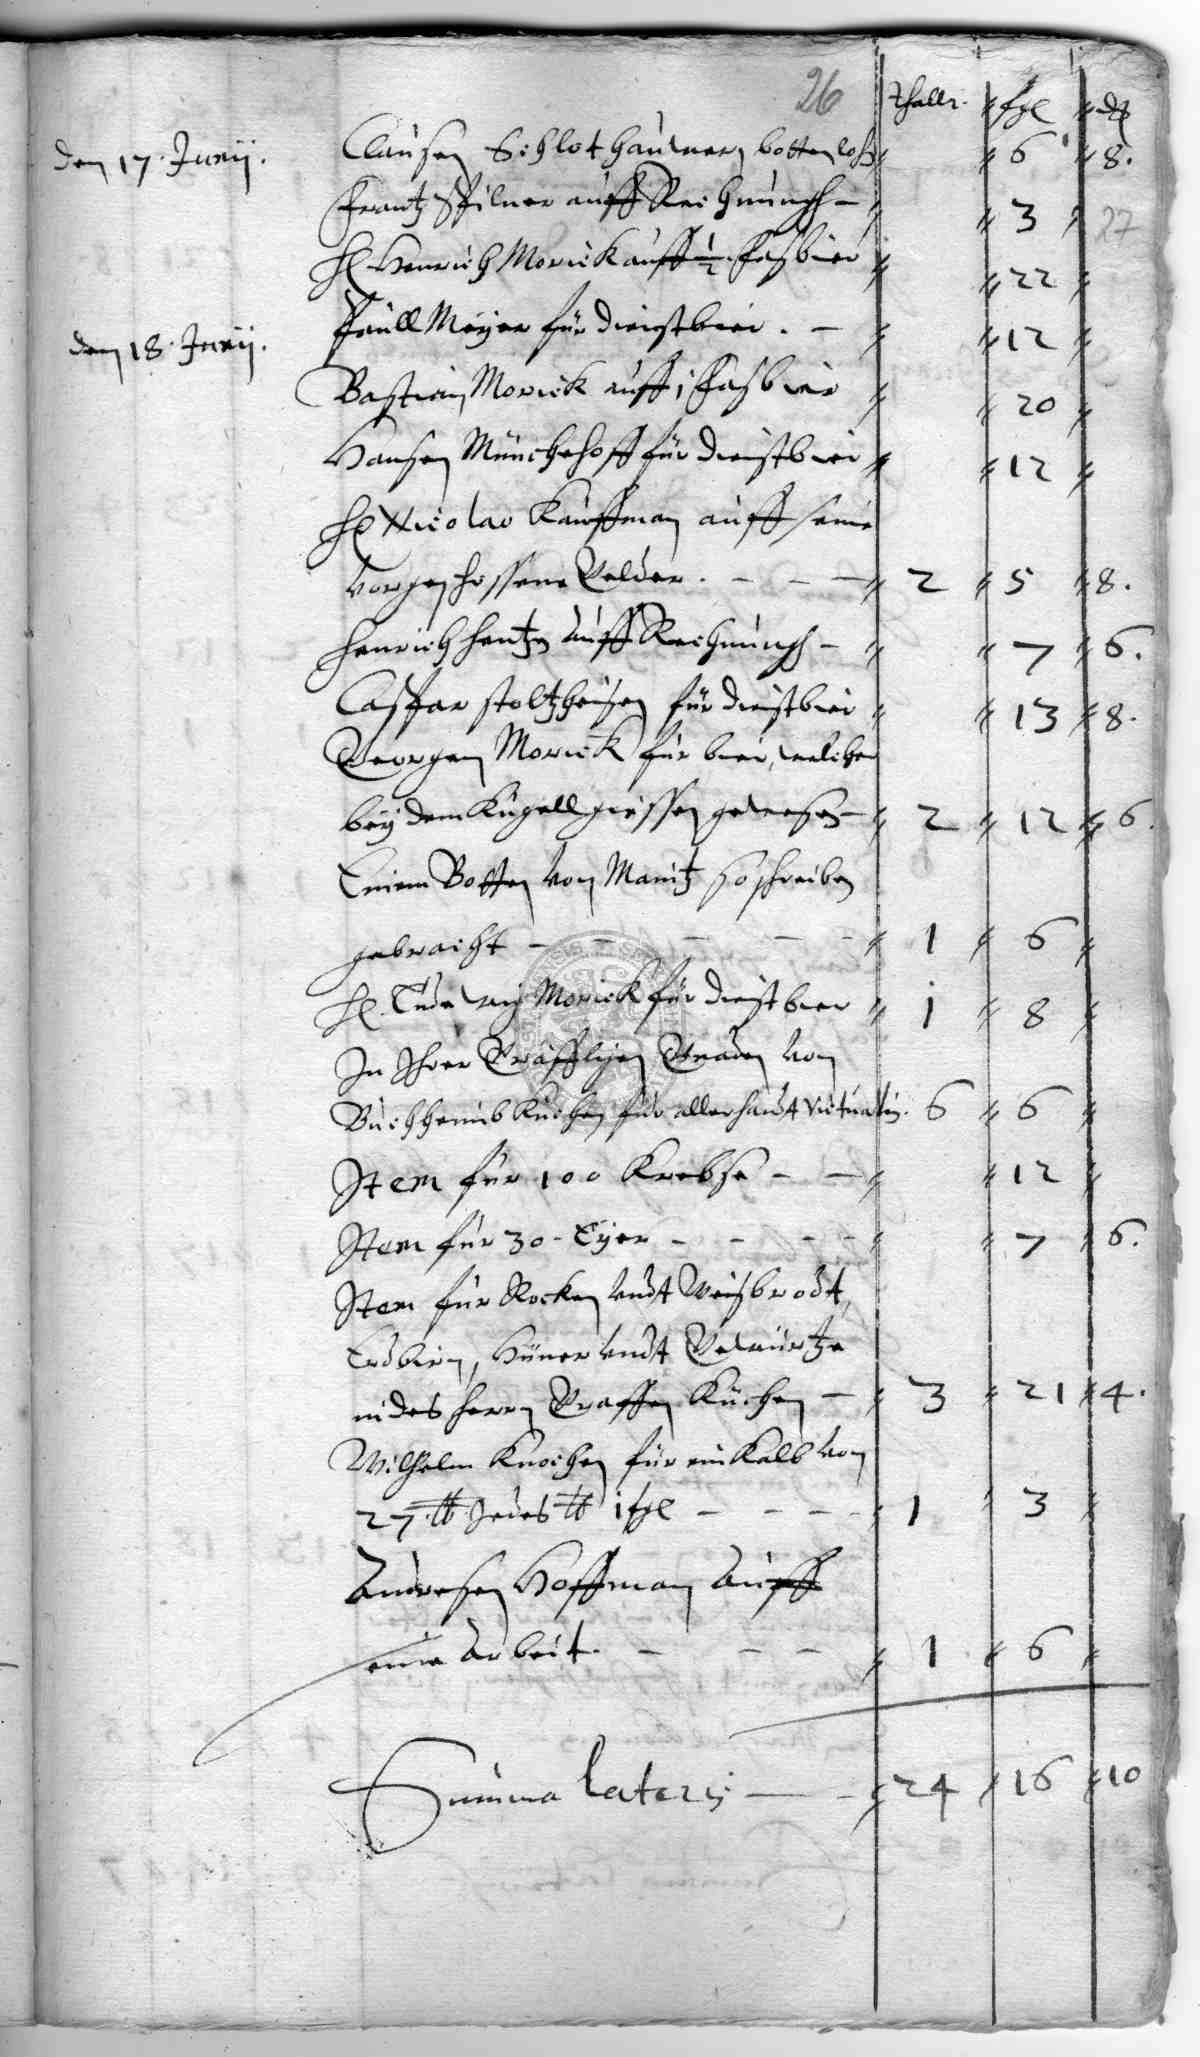 26
thallr. sgl d
den 17. Junij. Clausen Schlothauwern bottenlohn 6 8.
Frantz Spilner auff Rechnungh – 3 27
H. Henrich Morick auff 1/2 fasbier 22
den 18. Junij. Paull Meyer für dienstbier. – 12
Bastian Morick auff i fasbier 20
Hansen Münchehoff für dienstbier 12
H. Nicolao Kauffman auff seine
vorgeschossene Gelder. – – – 2 5 8.
Henrich Hentzen auff Rechnungh – 7 6.
Caspar Stoltzheisen für dienstbier 13 8.
Georgen Morick für bier, welcher
bey dem Kugell giessen gewesen – 2 12 6.
Einem Botten von Maintz so schreiben
gebracht – – – – – 1 6
H. Ludewig Morick für dienstbier i 8
In Ihrer Gräfflichen Gnaden von
Küchen für allerhandt victualien. 6 6
Item für 100 Krebse – – 12
Item für 30 – Eyer – – – – 7 6.
Item für Rocken undt Weisbrodt,
Erdbirn, Hüner undt Gewürtze
in des Herrn Graffen Küchen – 3 21 4.
Wilhelm Knochen für ein Kalb von
27 ℔ Jedes ℔ i sgl – – – – 1 3
Andresen Hoffman auff
seine arbeit. – – – 1 6
Summa lateris – – 24 16 10